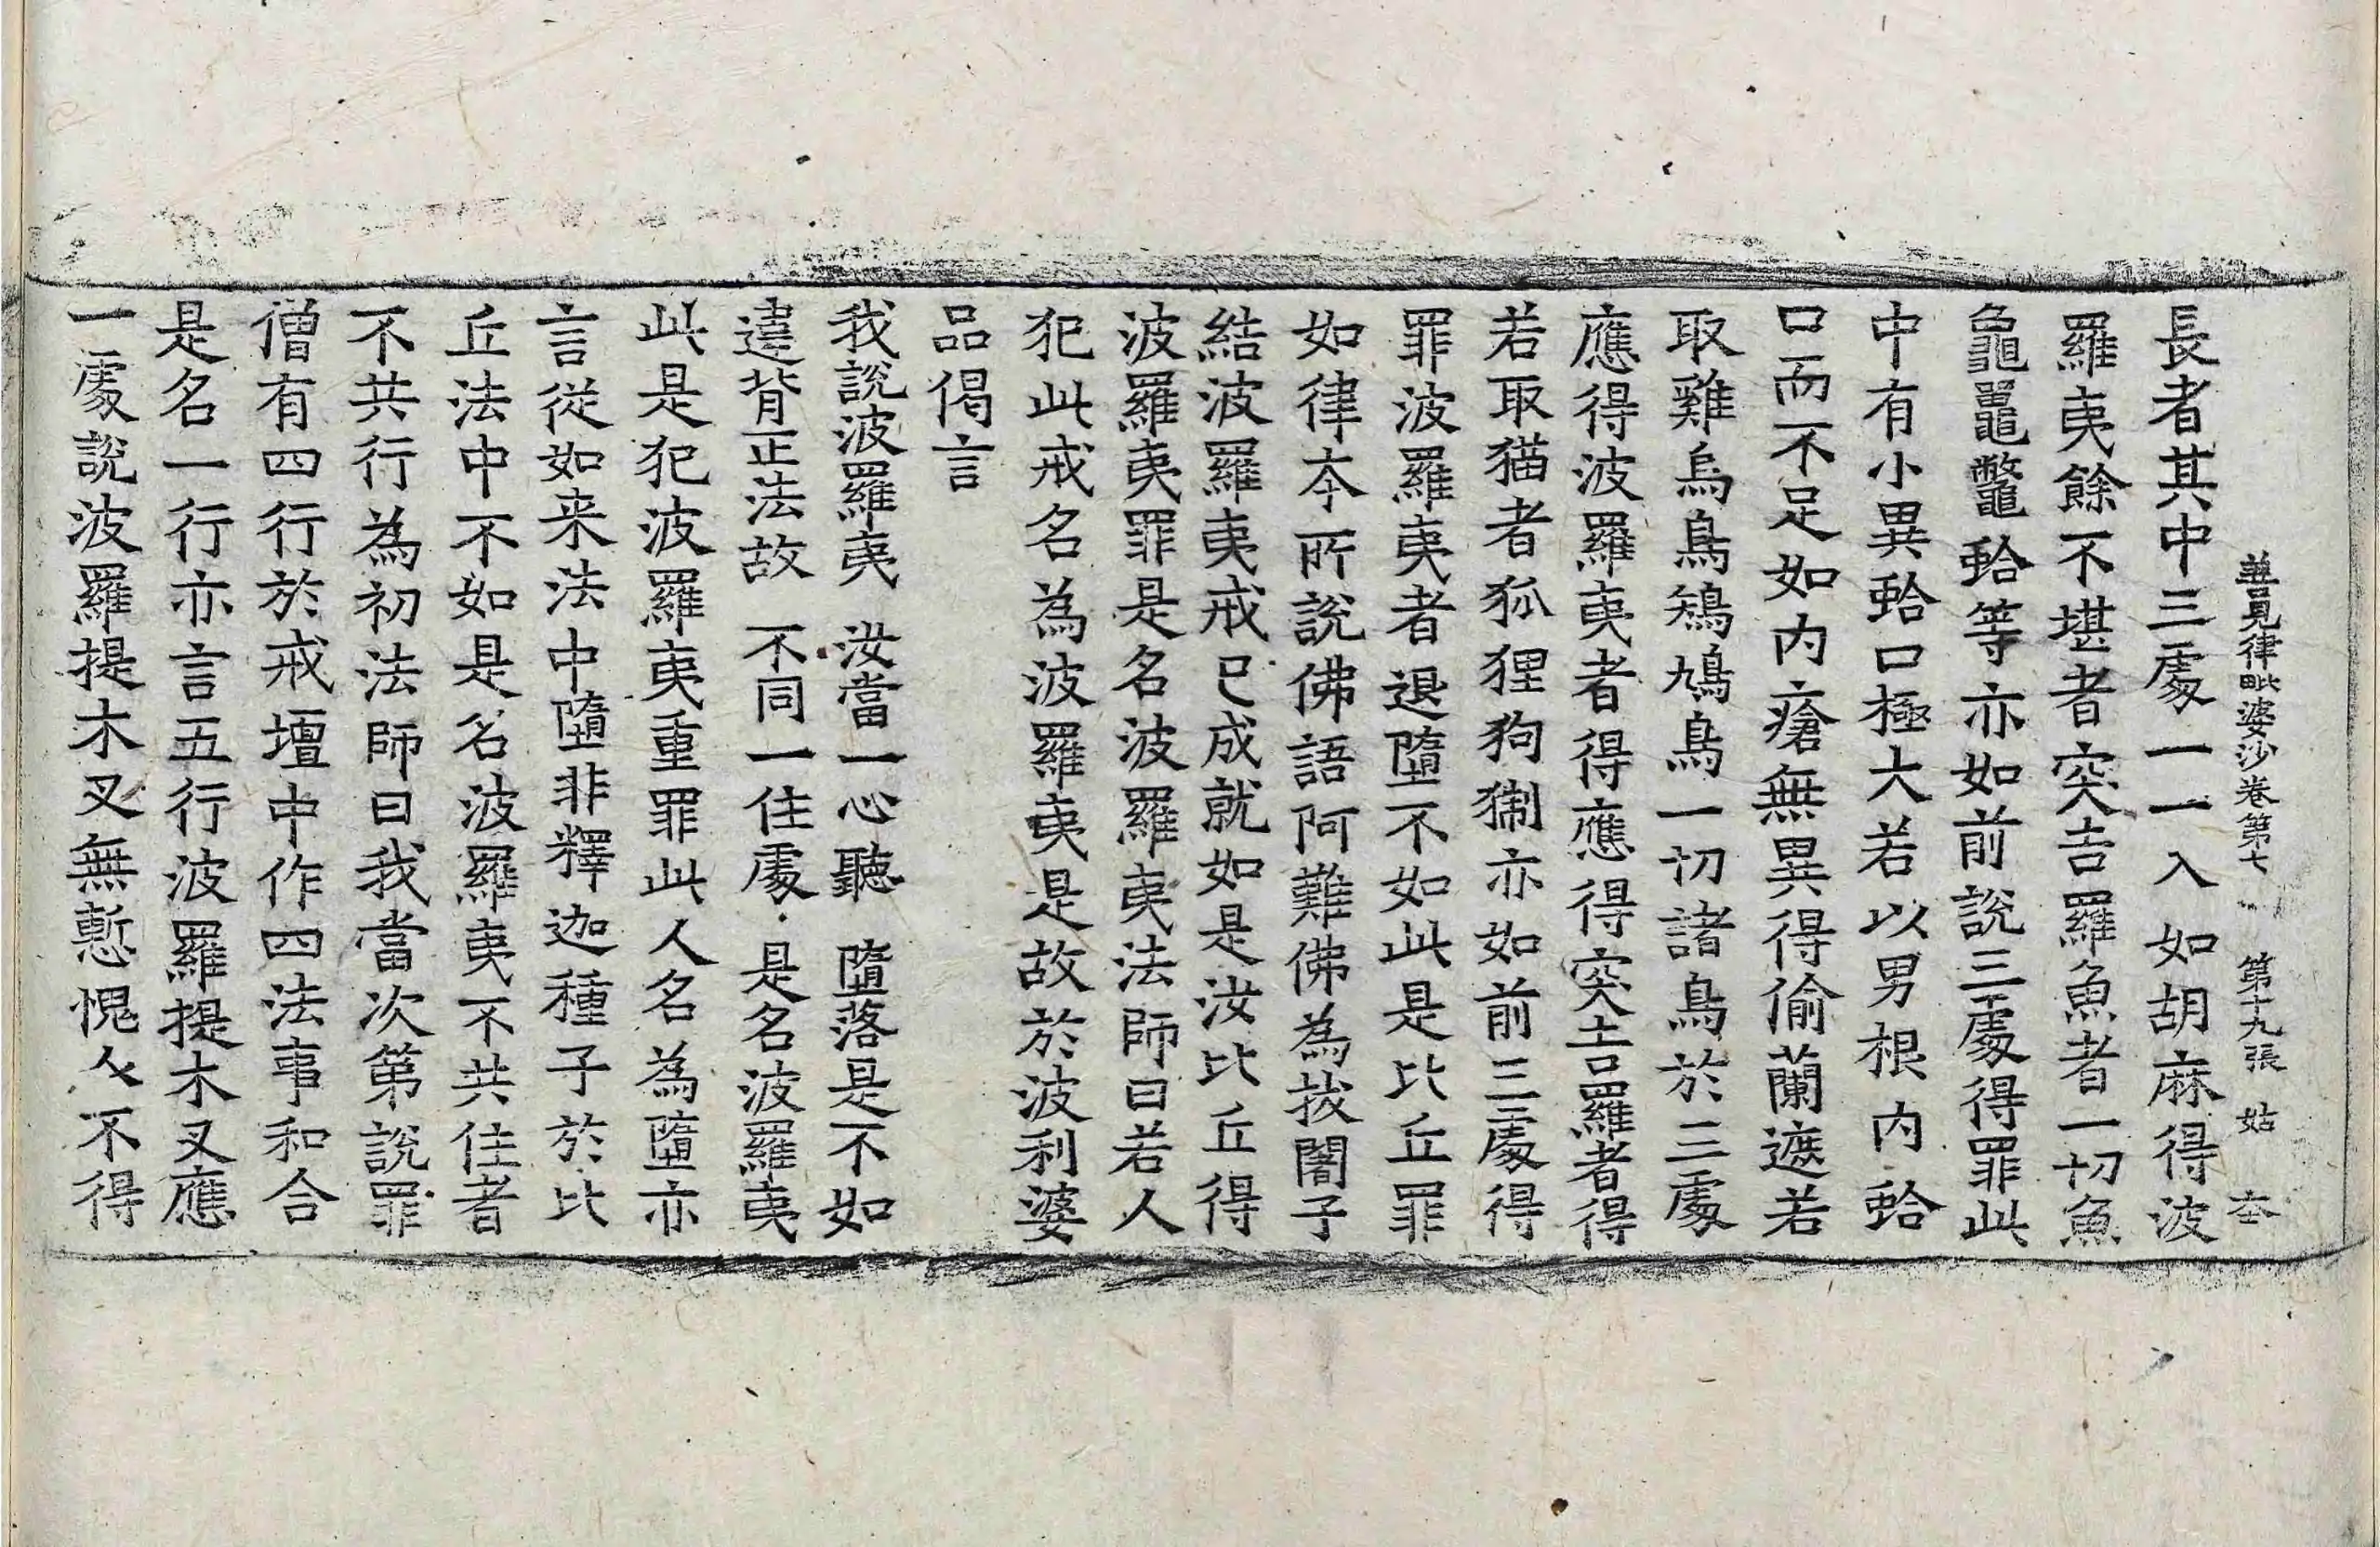 善見律毗婆沙卷第七 第十九張 姑 夲
長者其中三處一一入如胡麻得波
羅夷餘不堪者突吉羅魚者一切魚
龜鼉鼈蛤等亦如前說三處得罪此
中有小異蛤口極大若以男根內蛤
口而不足如內瘡無異得偷蘭遮若
取雞烏鳥鵄鳩鳥一切諸鳥於三處
應得波羅夷者得應得突吉羅者得
若取猫者狐狸狗獺亦如前三處得
罪波羅夷者退墮不如此是比丘罪
如律夲所說佛語阿難佛為拔闍子
結波羅夷戒已成就如是汝比丘得
波羅夷罪是名波羅夷法師曰若人
犯此戒名為波羅夷是故於波利婆
品偈言
我說波羅夷 汝當一心聽 墮落是不如
違背正法故 不同一住處 是名波羅夷
此是犯波羅夷重罪此人名為墮亦
言從如来法中墮非釋迦種子於比
丘法中不如是名波羅夷不共住者
不共行為初法師曰我當次第說罪
僧有四行於戒壇中作四法事和合
是名一行亦言五行波羅提木叉應
一處說波羅提木叉無慙愧人不得